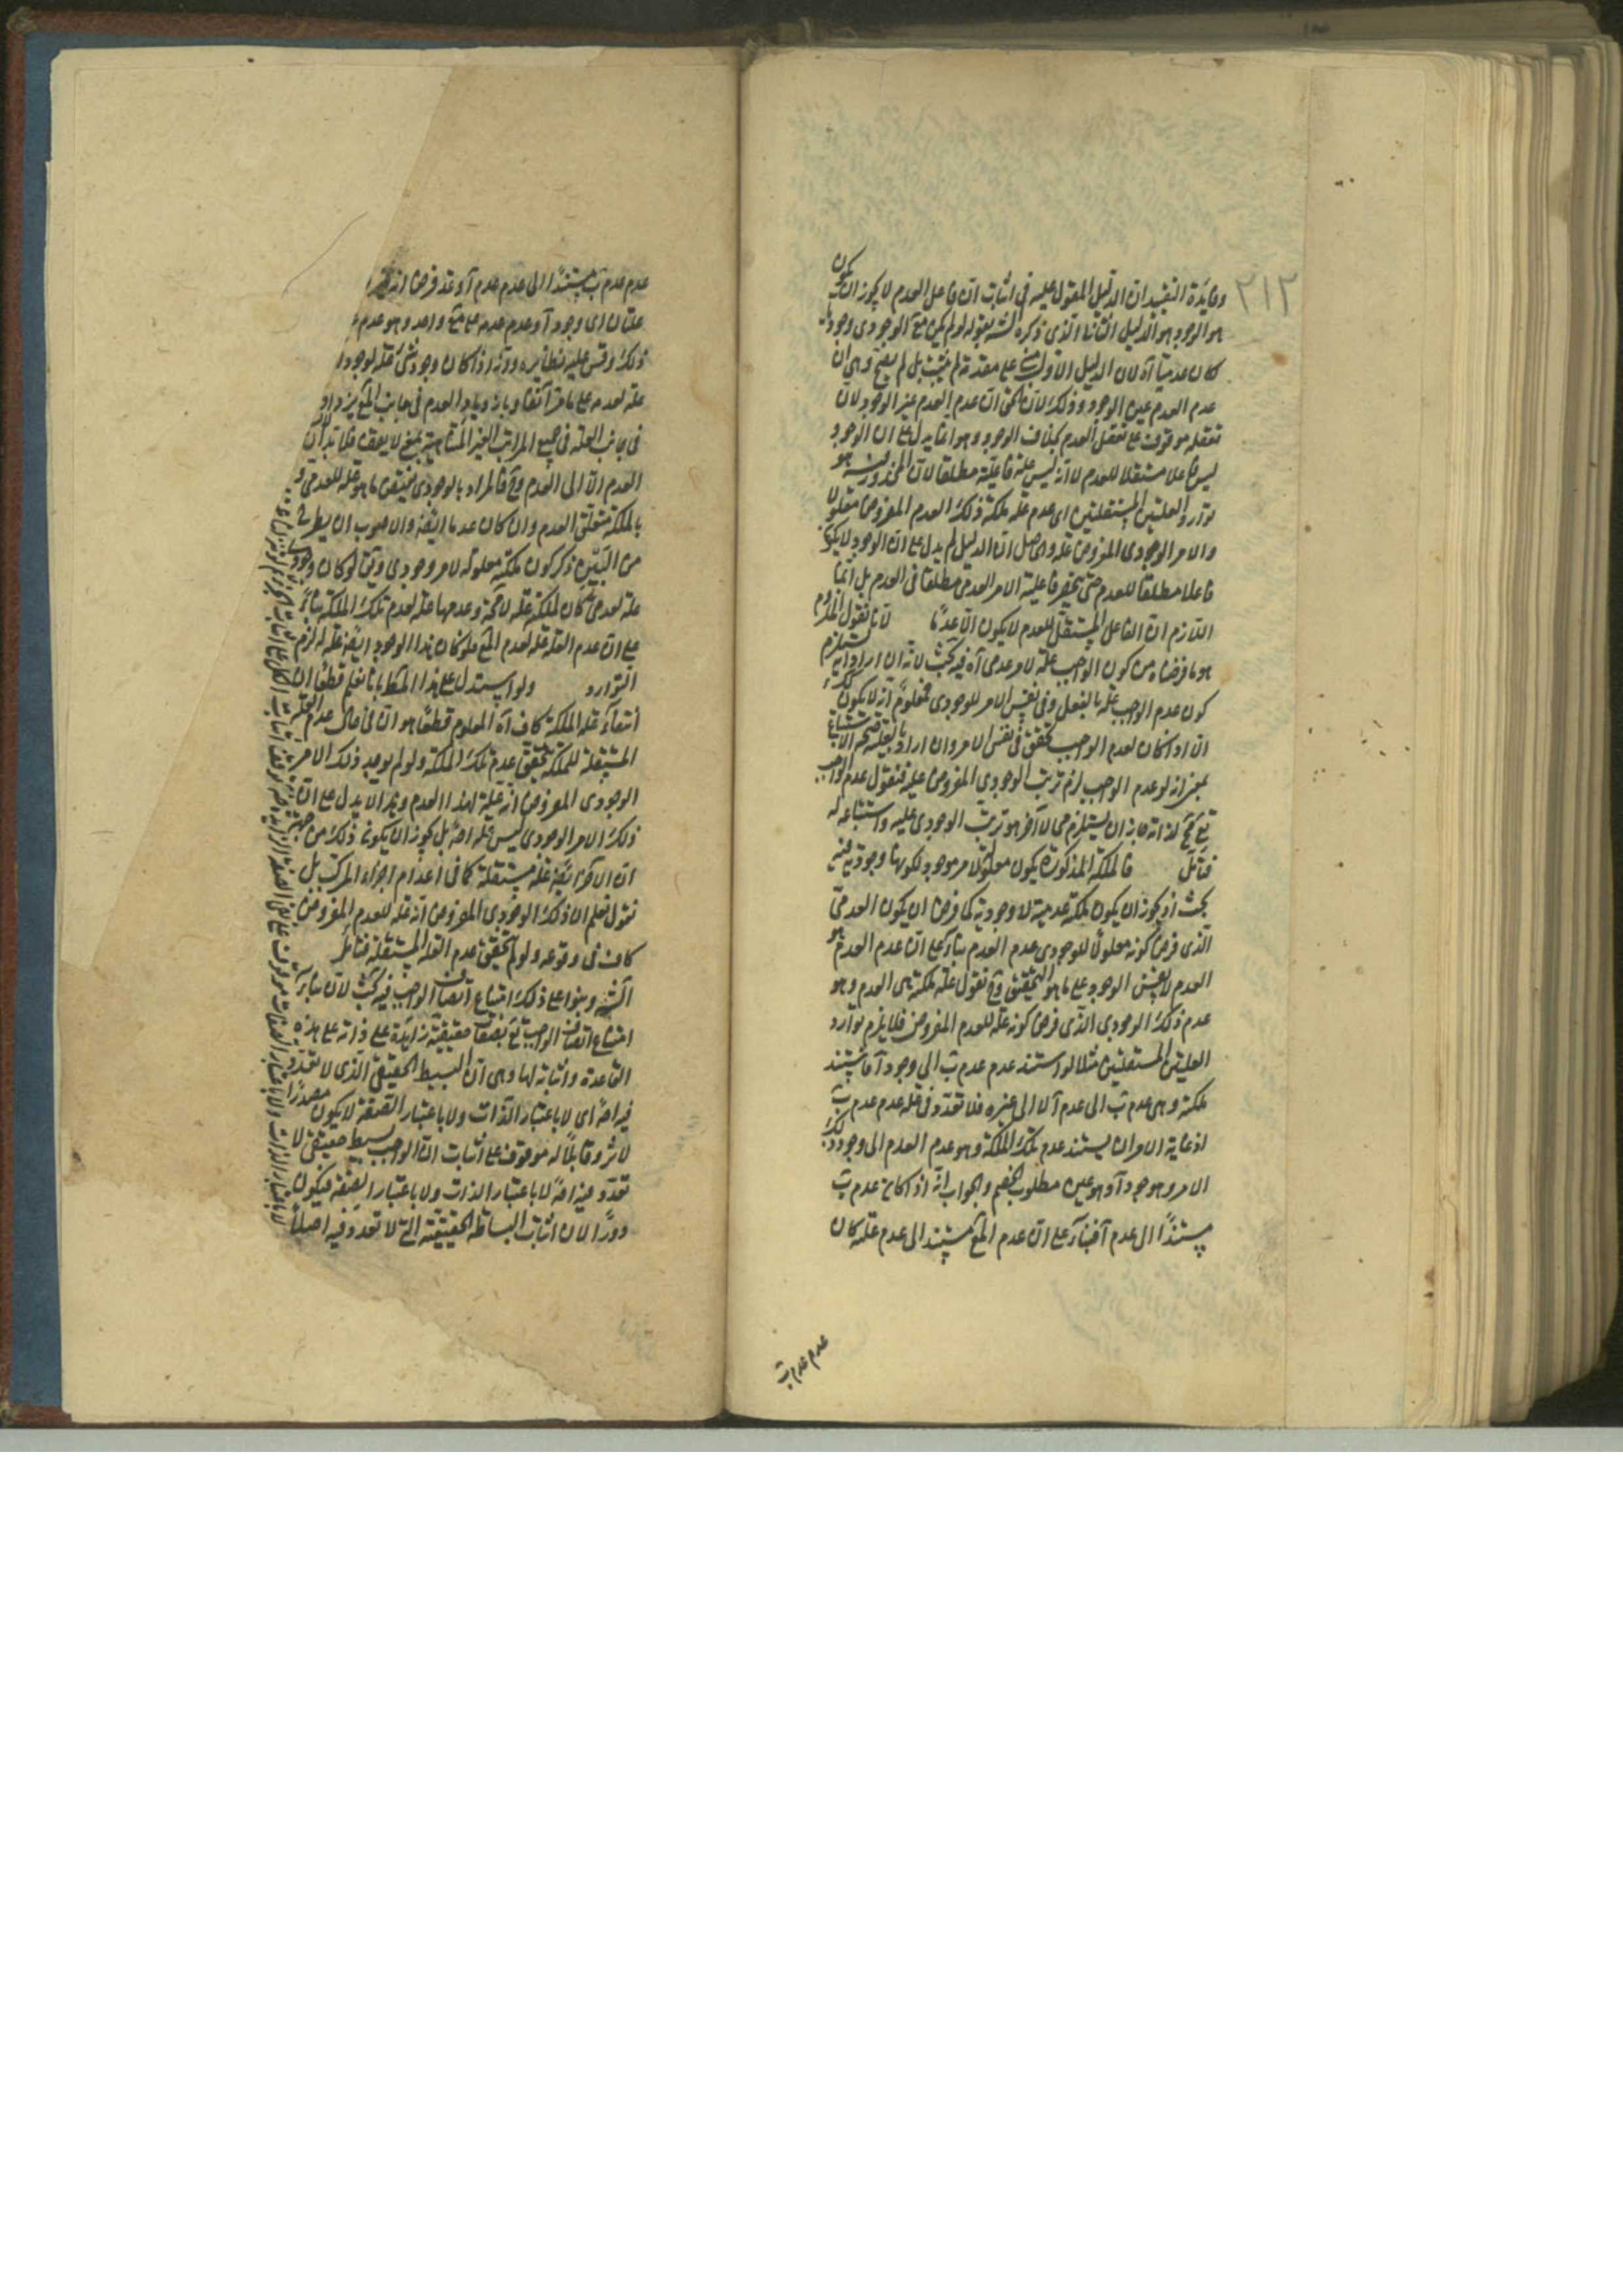 ٢١٢
وفائدة التقييد ان الدليل المعول عليه في اثبات ان فاعل العدم لا يجوز ان يكون
هو الوجود هو الدليل الثاني الذي ذكره الش بقوله لو لم يكن مع الوجودي وجود
كان عدميا آه لان الدليل الاول على مقدمة لم يثبت بل لم يصح وهي ان
عدم العدم عين الوجود وذلك لان الحق ان عدم العدم غير الوجود لان
تعقله موقوف على تعقل العدم بخلاف الوجود وهو انما يدل على ان الوجود
ليس فاعلا مستقلا للعدم لا انه ليس علة فاعلية مطلقا لان المحذور هو
توارد العلتين المستقلتين اى عدم علة ملكة ذلك العدم المفروض معلولا
والامر الوجودى المفروض علة والحاصل ان الدليل لم يدل على ان الوجود لا يكون
فاعلا مطلقا للعدم حتى ينحصر فاعلية الامر العدمى مطلقا فى العدم بل انما
اللازم ان الفاعل المستقل للعدم لا يكون الا عدما لانا نقول الملزوم
هو ما فرضناه من كون الواجب علة لامر عدمى آه فيه بحث لانه ان اراد انه يستلزم
كون عدم الواجب علة بالفعل وفى نفس الامر للوجودى فمعلوم انه لا يكون كذلك
الا اذا كان لعدم الواجب تحقق فى نفس الامر وان اراد بالعلية صحة الاستتباع
بمعنى انه لو عدم الواجب لزم ترتب الوجودى المفروض عليه فنقول عدم الواجب
تع مح لذاته جاز ان يستلزم محالا آخر هو ترتب الوجودى عليه واستتباعه له
فتأمل فالملكة المذكورة يكون معلولة لامر موجود لكونها وجودية فيه
بحث اذ يجوز ان يكون ملكة عدمية لا وجودية كما فرض ان يكون العدمى
الذى فرض كونه معلولا للوجودى عدم العدم بناء على ان عدم العدم هو
العدم لا نفس الوجود على ما هو التحقيق وح نقول علة ملكة هى العدم وهو
عدم ذلك الوجودى الذى فرض كونه علة للعدم المفروض فلا يلزم توارد
العلتين المستقلتين مثلا لو استند عدم عدم ب الى وجود آ فاستند
ملكة وهى عدم ب الى عدم آ لا الى غيره فلا تعدد فى علة عدم عدم ب
اذ غاية الامر ان يستند عدم تلك الملكة وهو عدم العدم الى وجود ذلك
الامر وهو وجود آ وهو عين مطلوب الخصم والجواب انه اذا كان عدم ب
مستندا الى عدم آ فبناء على ان عدم المع يستند الى عدم علته كان
عدم عدم ب
عدم عدم ب مستندا الى عدم عدم آ وقد فرض انه
علتان اى وجود آ وعدم عدمه على مع واحد وهو عدم
ذلك وقس عليه نظايره وانه اذا كان وجود شئ علة لوجود
علة لعدمه على ما مر آنفا وبازدياد العدم فى جانب المع يزداد
فى جانب العلة فى جميع المراتب الغير المتناهية بمعنى لا يقف فلا بد ان
العدم الا الى العدم وح فالمراد بالوجودى فيقتضى ما هو علة للعدمى و
بالملكة متعلق العدم وان كان عدما ايضا والصوب ان يطرح
من البين ذكر كون ملكته معلولة لامر وجودى ويق لو كان وجودى
علة لعدمى كان لملكته علة لا محة وعدمها علة لعدم تلك الملكة بناء
على ان عدم العلة علة لعدم المع فلو كان هذا الوجود ايضا علة له لزم
التوارد ولو استدل على هذا المط بانا نعلم قطعا ان
انتفاء علة الملكة كاف آه المعلوم قطعا هو ان فى حال عدم العلة
المستقلة للملكة تحقق عدم تلك الملكة ولو لم يوجد ذلك الامر
الوجودى المفروض انه علية لهذا العدم وهذا لا يدل على ان
ذلك الامر الوجودى ليس علة اصلا بل يجوز ان يكونا ذلك من جهة
ان الآخر ايضا علة مستقلة كما فى اعدام اجزاء المركب بل
نقول نعلم ان ذلك الوجودى المفروض انه علة للعدم المفروض
كاف فى وقوعه ولو لم يتحقق عدم العلة المستقلة فتأمل
الش وبنوا على ذلك امتناع اتصاف الواجب فيه بحث لان بناء
امتناع اتصاف الواجب تع بصفات حقيقية زائدة على ذاته على هذه
القاعدة واثباته لها وهى ان البسيط الحقيقى الذى لا تعدد
فيه اصلا اى لا باعتبار الذات ولا باعتبار الصفة لا يكون مصدرا
لاثر وقابلا له موقوف على اثبات ان الواجب بسيط حقيقى لا
تعدد فيه اصلا لا باعتبار الذات ولا باعتبار الصفة فيكون
دورا لان اثبات البساطة الحقيقية التى لا تعدد فيه اصلا
لا باعتبار الذات ولا باعتبار الصفات موقوف على نفى الصفة الزايدة